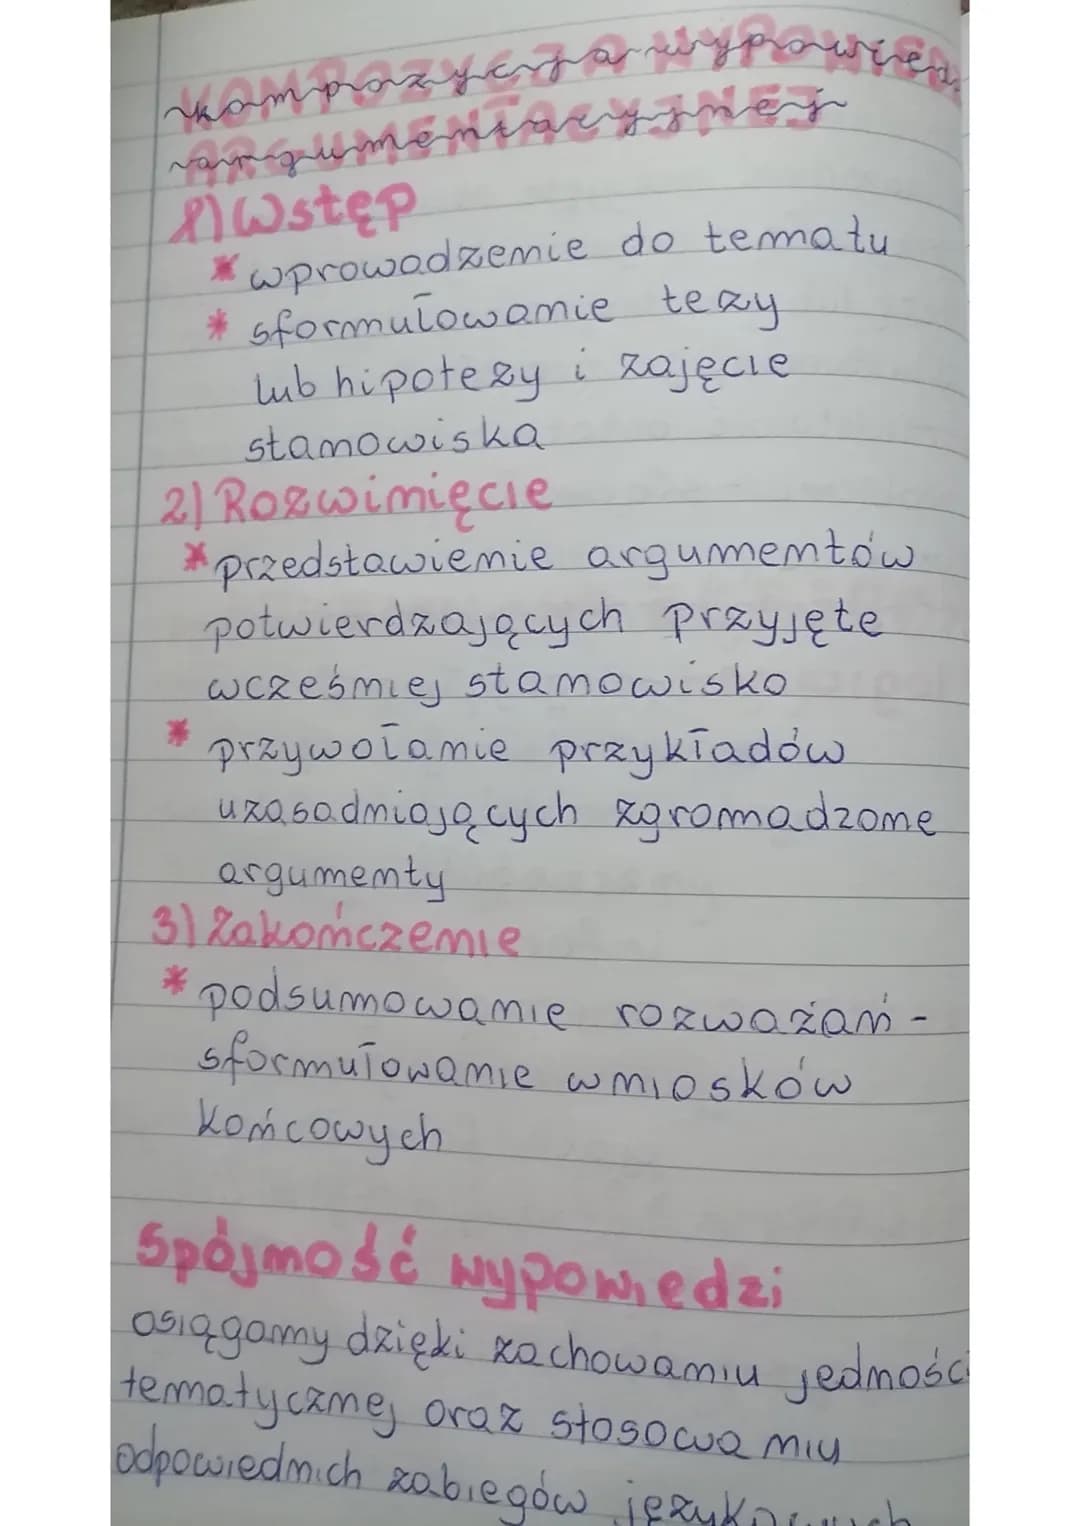 kompozycja wypowied
argumentacyjnej
1) Wstęp
* wprowadzenie do tematu
* sformułowanie tezy
lub hipotezy i zajęcie
stanowiska
2) Rozwinięcie
* przedstawienie argumentów
potwierdzających przyjęte
wcześniej stanowisko
* przywołanie przykładów
uzasadniających zgromadzone
argumenty
3) Zakończenie
* podsumowanie rozważań -
sformułowanie wniosków
końcowych
Spójność wypowiedzi
osiągamy dzięki zachowaniu jedności
tematycznej oraz stosowaniu
odpowiednich zabiegów językowych